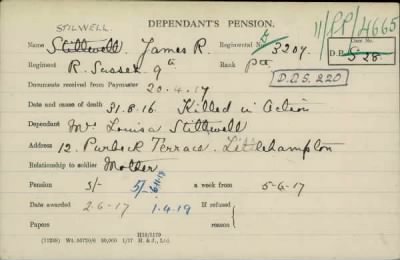 DEPENDANT'S PENSION.
STILWELL
Name Stillwell. James R. Regimental No. 3207. 11/DP/4665
Case No.
Regiment R. Sussex 9th Rank Pte D.B. 528.
D.O.S. 220
Documents received from Paymaster 20.4.17
Date and cause of death 31.8.16 Killed in Action
Dependant Mrs Louisa Stillwell
Address 12. Purbeck Terrace. Littlehampton
Relationship to soldier Mother
Pension 5/- 5/- 6.11.18 a week from 5-6-17
Date awarded 2-6-17 1.4.19 If refused
Papers reason
H16/1179
(11238) Wt. 50,000 1/17 H. & J., Ltd.